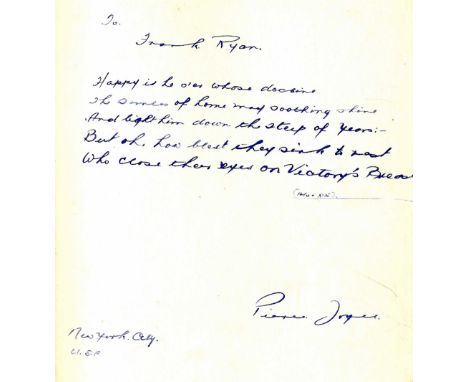 To.
Frank Ryan.
Happy is he o'er whose decline
The smiles of home may soothing shine
And light him down the steep of Years:-
But oh, how blest they sink to rest
Who close their eyes on Victory's Breas
Pierce
New York. City.
U.S.A